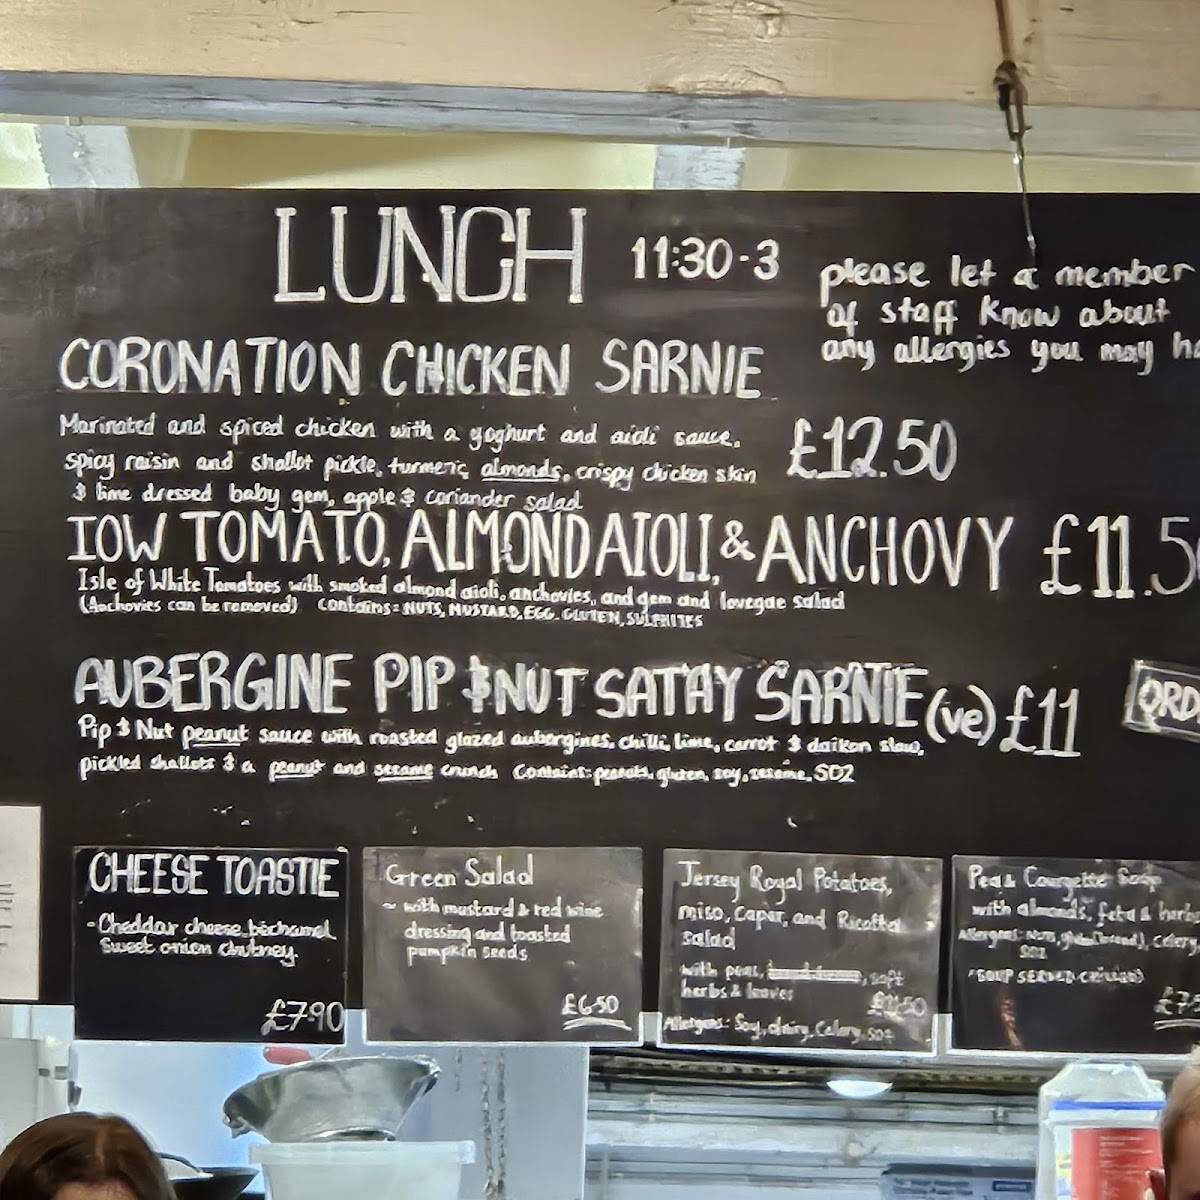 LUNCH 11:30-3
please let a member
of staff know about
any allergies you may
CORONATION CHICKEN SARNIE
Marinated and spiced chicken with a yoghurt and aioli sauce,
spicy raisin and shallot pickle, turmeric almonds, crispy chicken skin
& lime dressed baby gem, apple & coriander salad
£12.50
IOW TOMATO, ALMOND AIOLI, & ANCHOVY £11.5
Isle of White Tomatoes with smoked almond aioli, anchovies, and gem and lovegae salad
(Anchovies can be removed) contains= NUTS, MUSTARD, EGG. GLUTEN, SULPHITES
AUBERGINE PIP & NUT SATAY SARNIE (ve) £11
Pip & Nut peanut sauce with roasted glazed aubergines, chilli, lime, carrot & daikon slaw,
pickled shallots & a peanut and sesame crunch Contains: peanuts, gluten, soy, sesame, SO2
ORD
CHEESE TOASTIE
- Cheddar cheese, béchamel
Sweet onion chutney.
£7.90
Green Salad
~ with mustard & red wine
dressing and toasted
pumpkin seeds
£6.50
Jersey Royal Potatoes,
miso, caper, and Ricotta
salad
with peas, soft
herbs & leaves
£11.50
Allergens: Soy, dairy, Celery, SO2
Pea & Courgette Soup
with almonds, feta & herb
Allergens: Nuts, gluten (bread), celery
SO2
*SOUP SERVED CHILLED
£7.